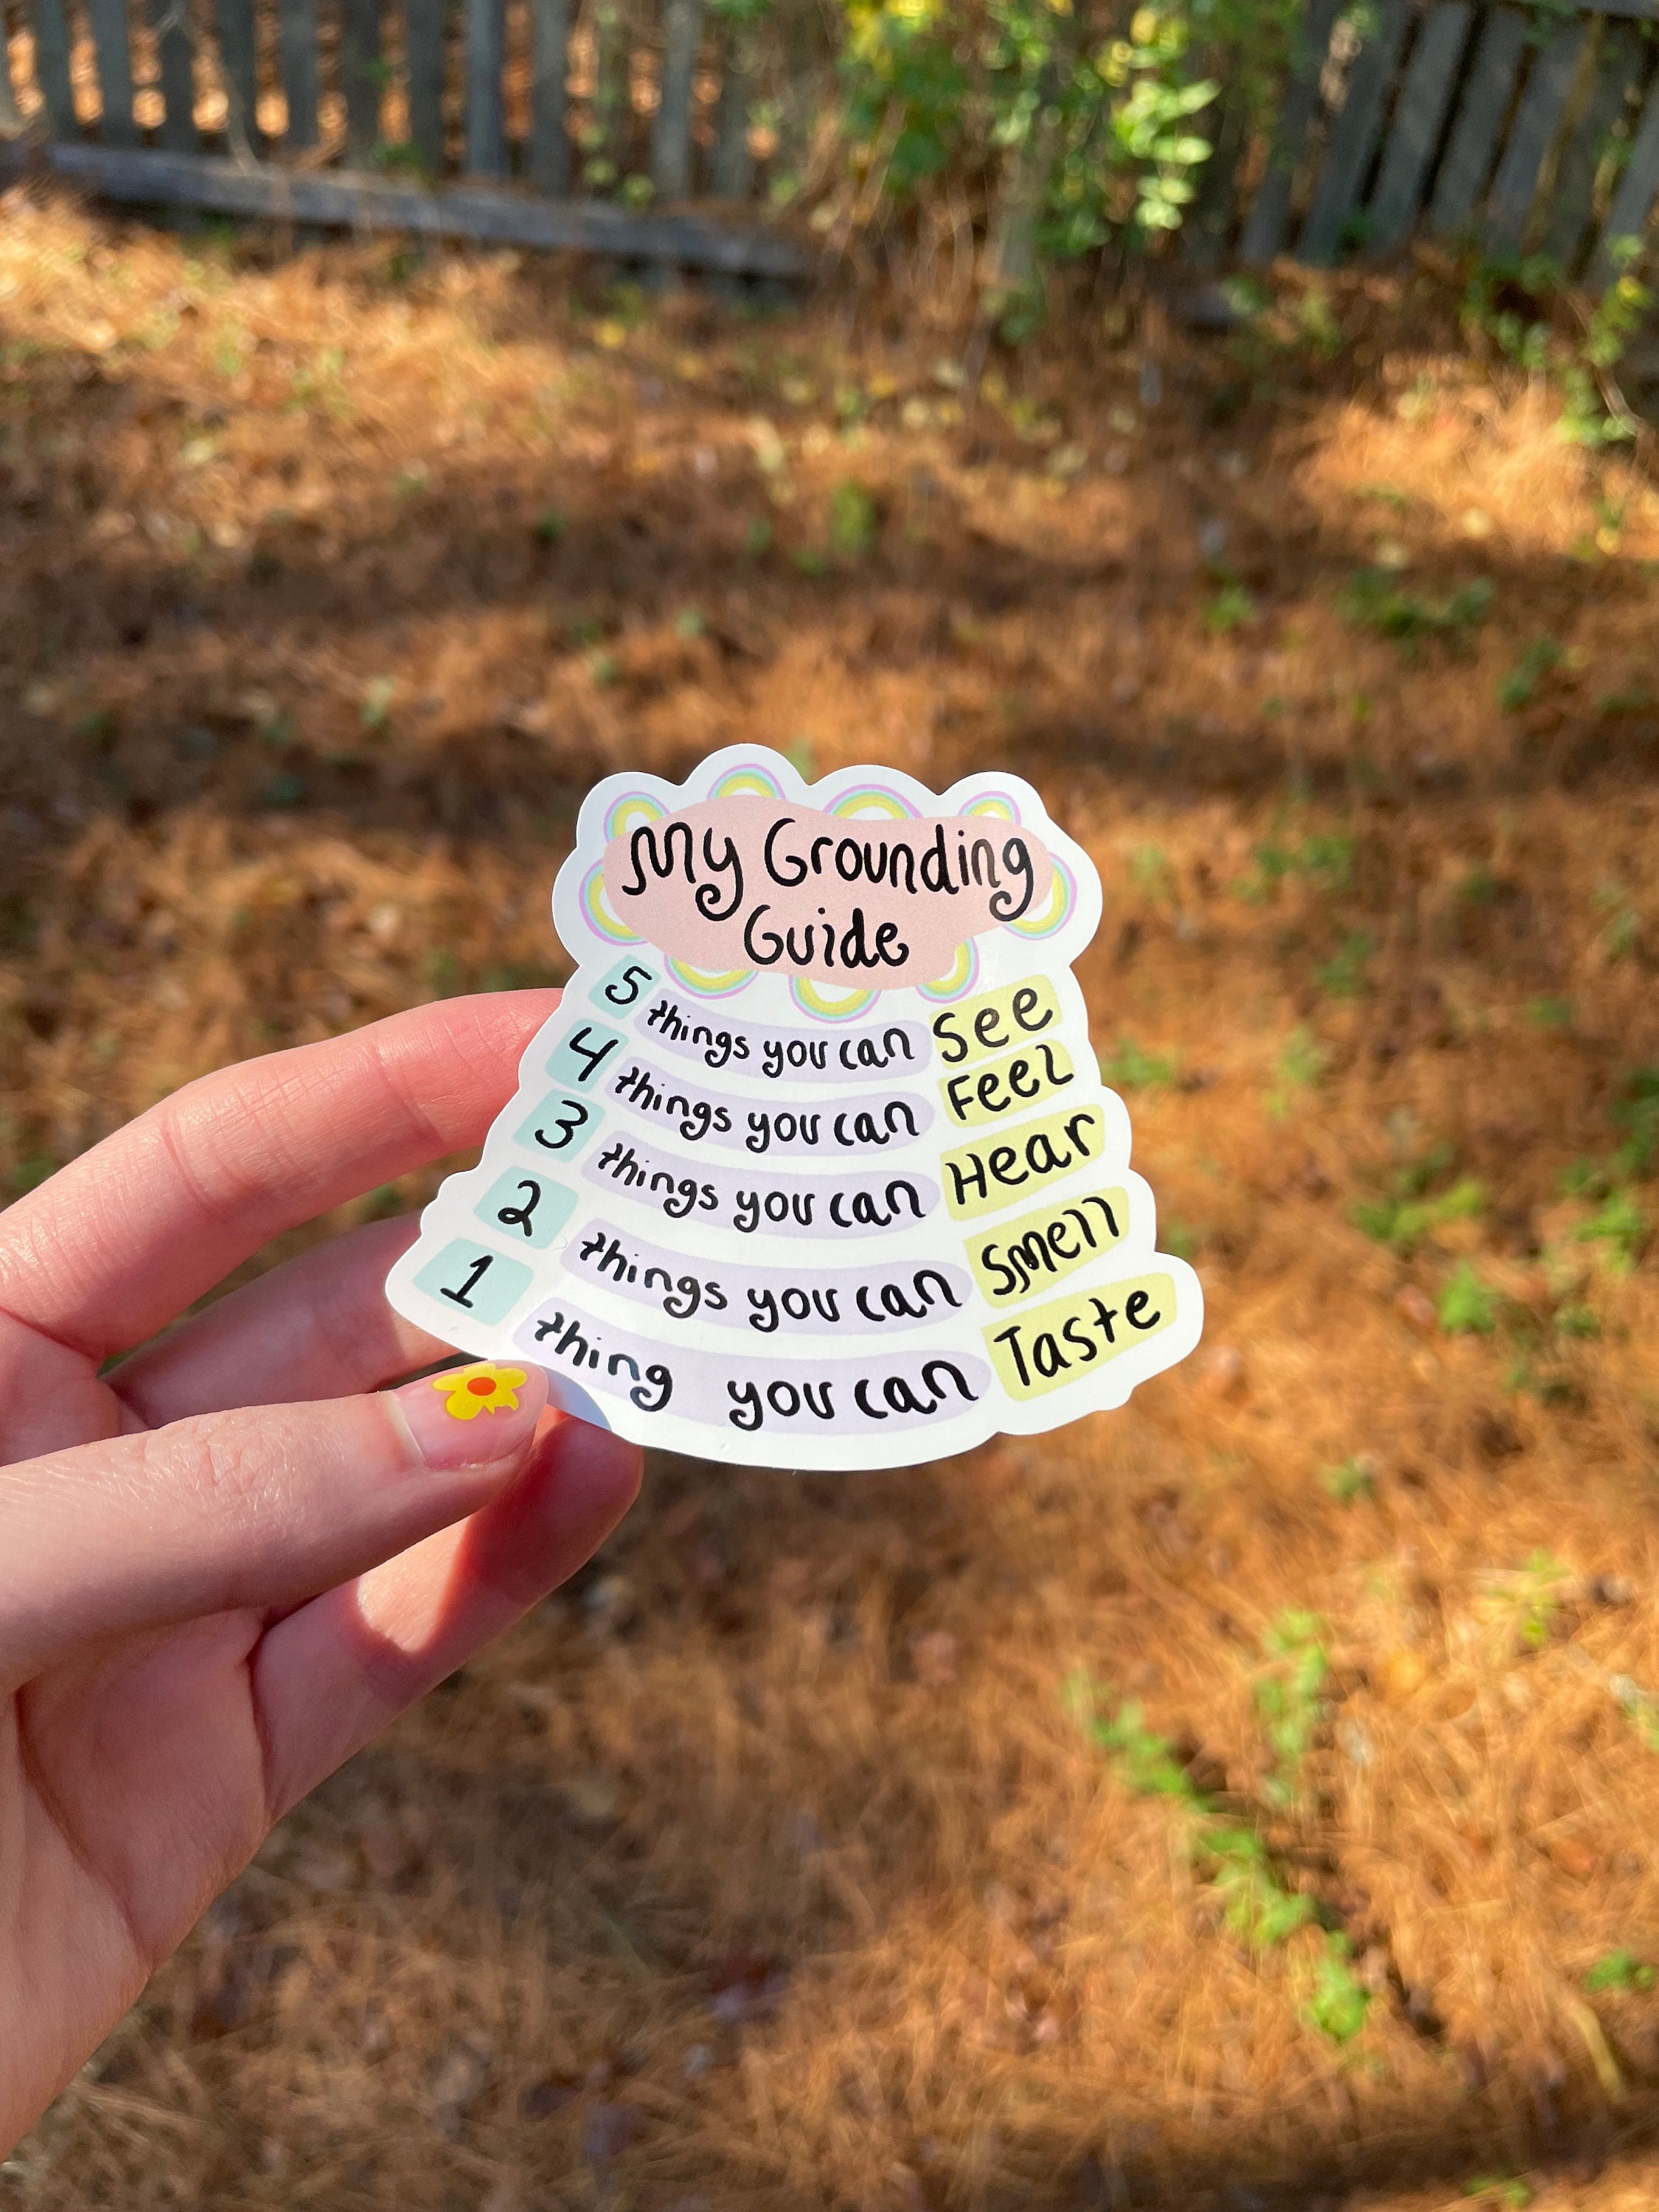 My Grounding
Guide
5 things you can See
4 things you can Feel
3 things you can Hear
2 things you can Smell
1 thing you can Taste